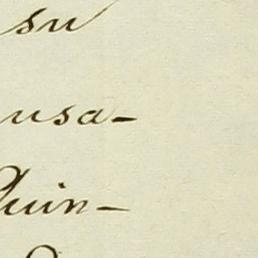 su
usa-
Quin-